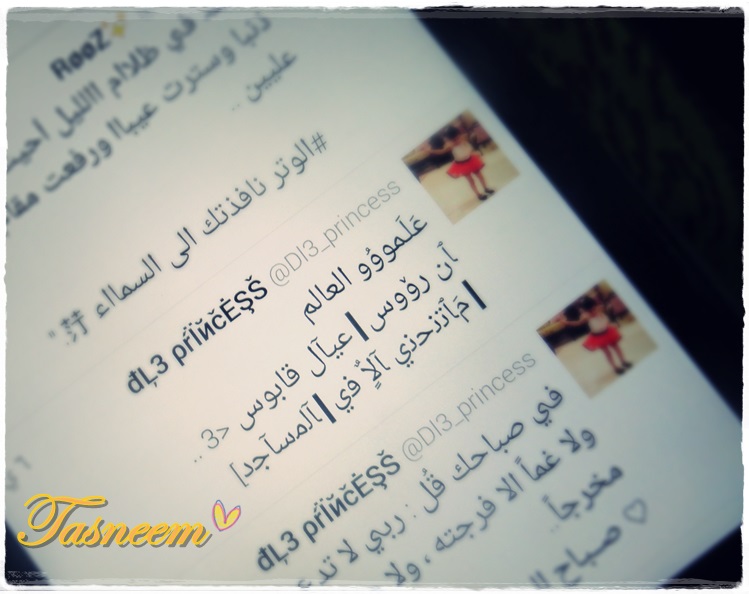 RøøZ
في ظلاام االليل أحيـ
دنيا وسترت عيباا ورفعت مقا
عليين ..
#الوتر نافذتك الى السمااء
đĻ3 pŕĺйčĖŞŠ @Dl3_princess
عَلَموؤُو العالم
أن رؤوس | عيآل قابوس <3 ..
| مَآتنحني آلآ في | آلمسآجد]
đĻ3 pŕĺйčĖŞŠ @Dl3_princess
في صباحك قُل : ربي لا تدع
ولا غماً الا فرجته ، ولا
مخرجاً ..
♡ صباح
Tasneem